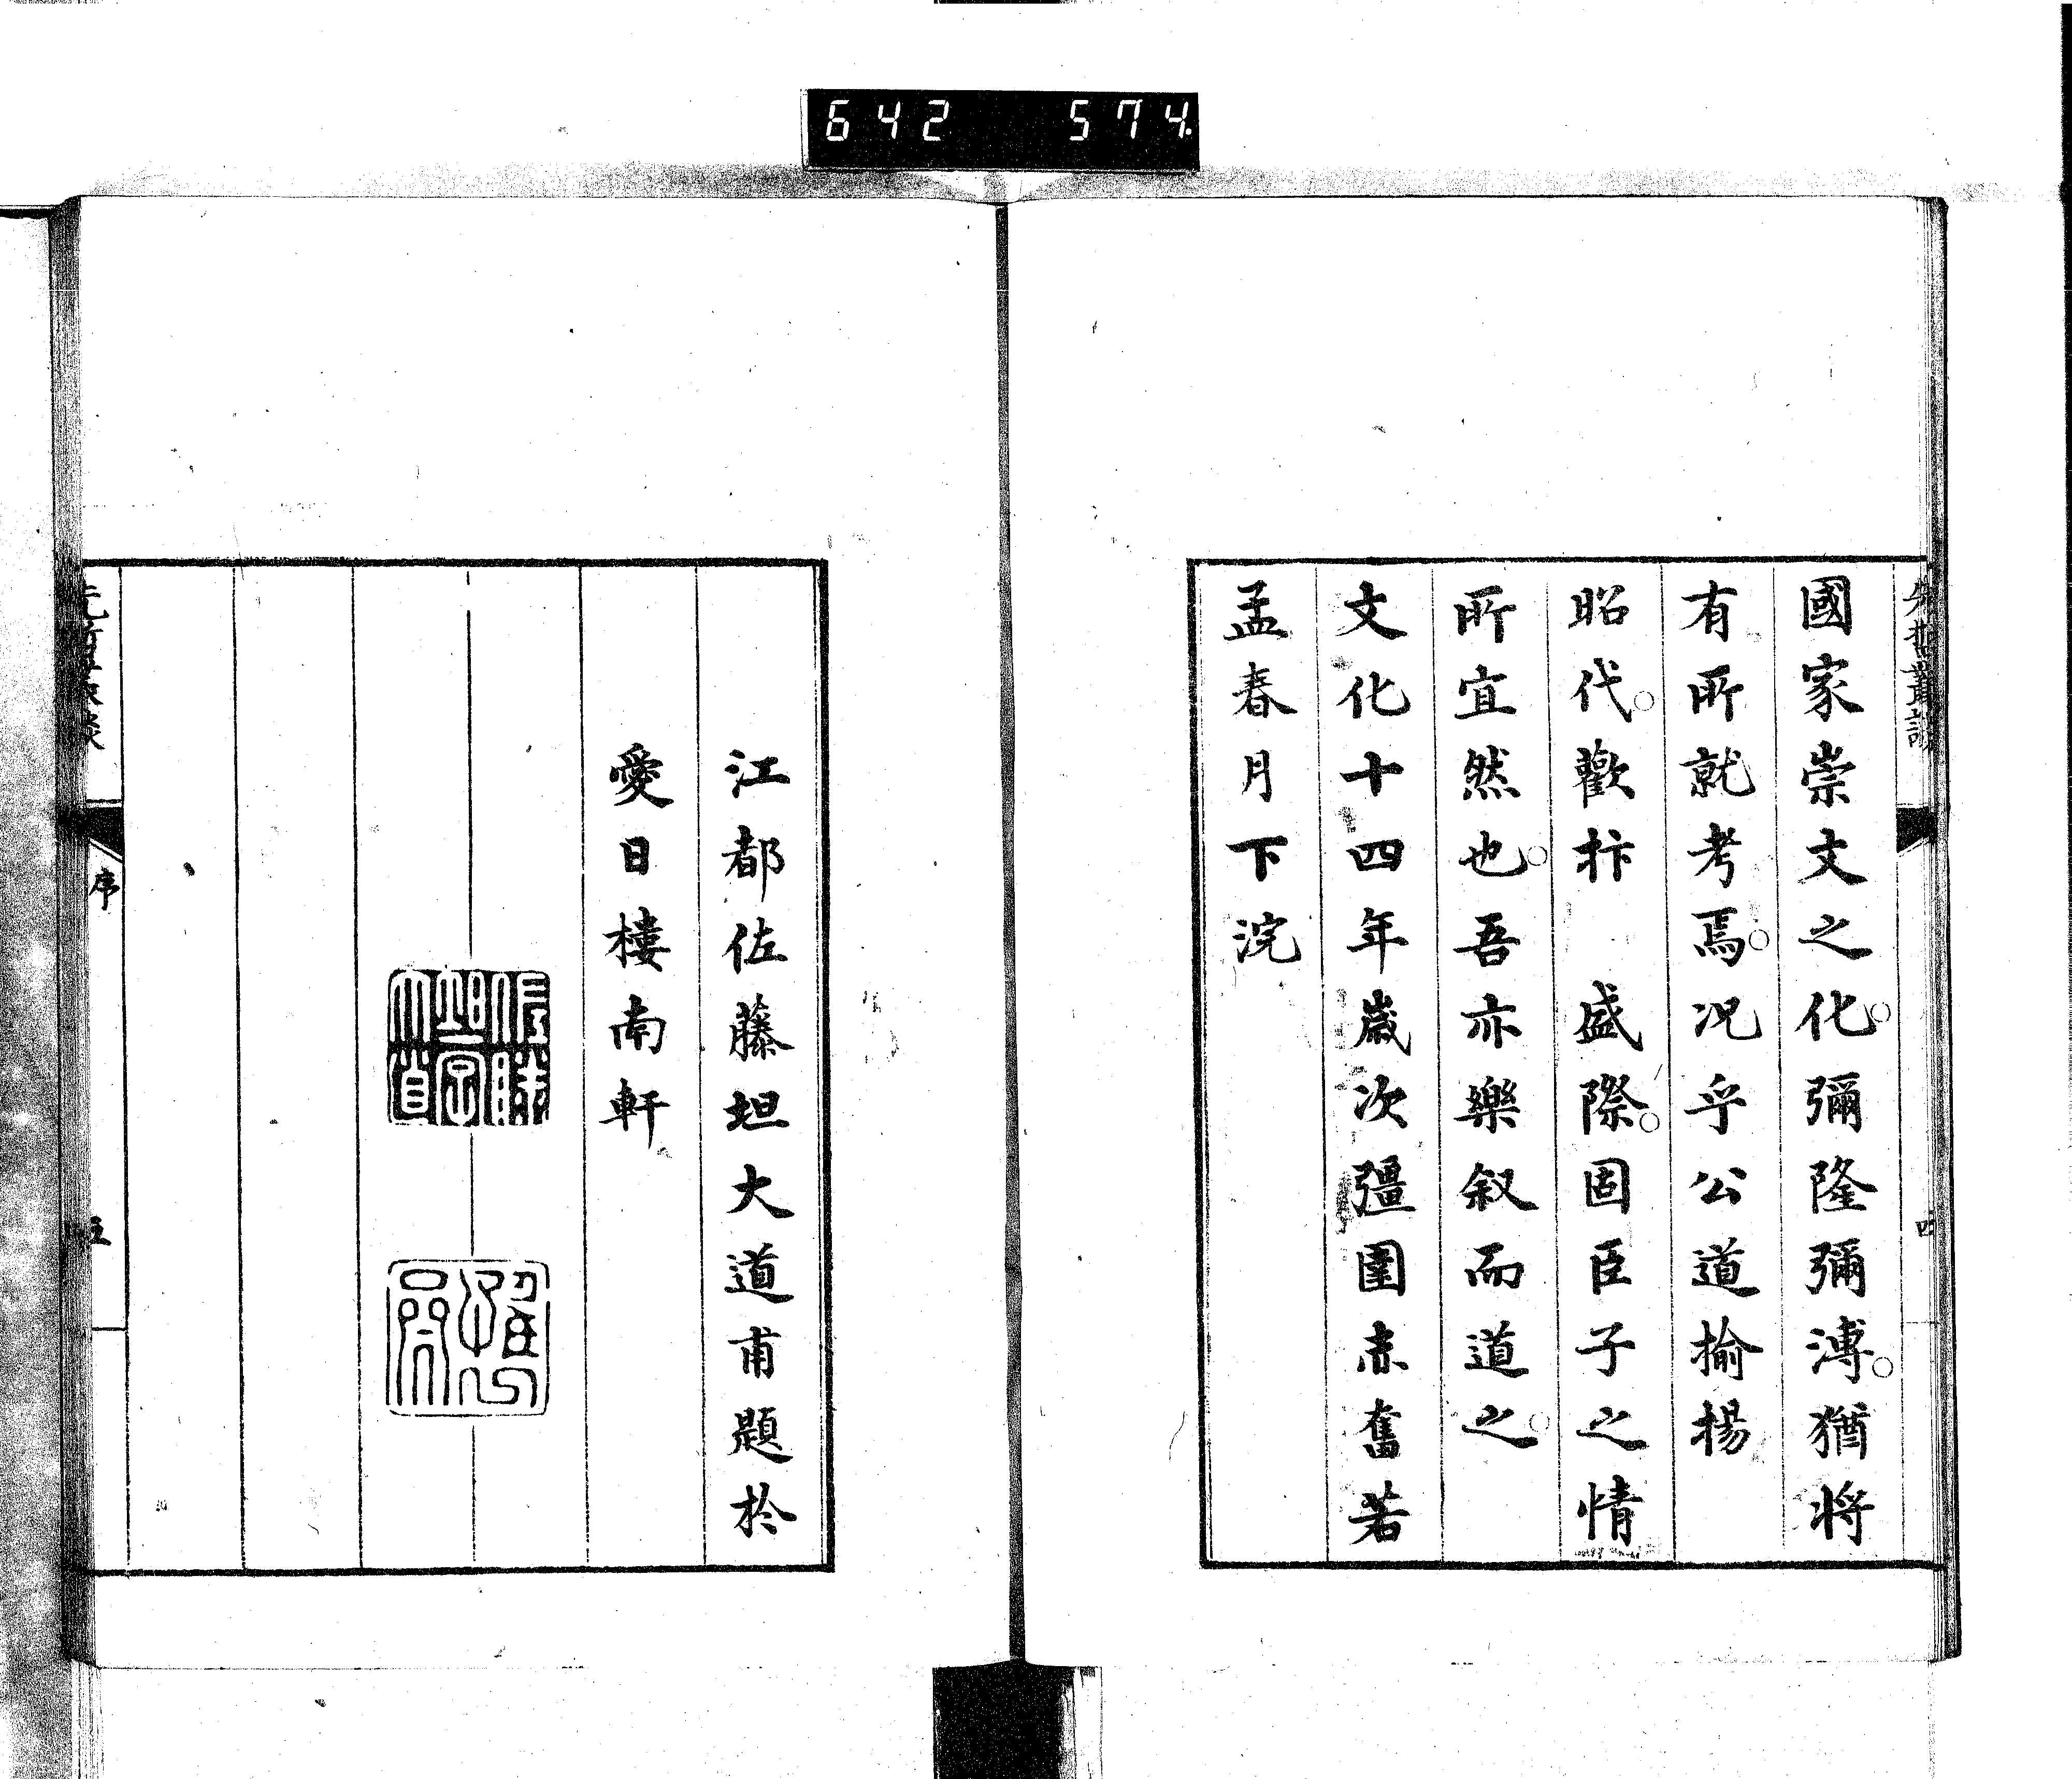 642 574.
先哲叢談
四
國家崇文之化○彌隆彌漙○猶將
有所就考焉○况乎公道揄揚
昭代○歡抃 盛際○固臣子之情
所宜然也○吾亦樂叙而道之○
文化十四年歲次彊圉赤奮若
孟春月下浣
江都佐藤坦大道甫題於
愛日樓南軒
序